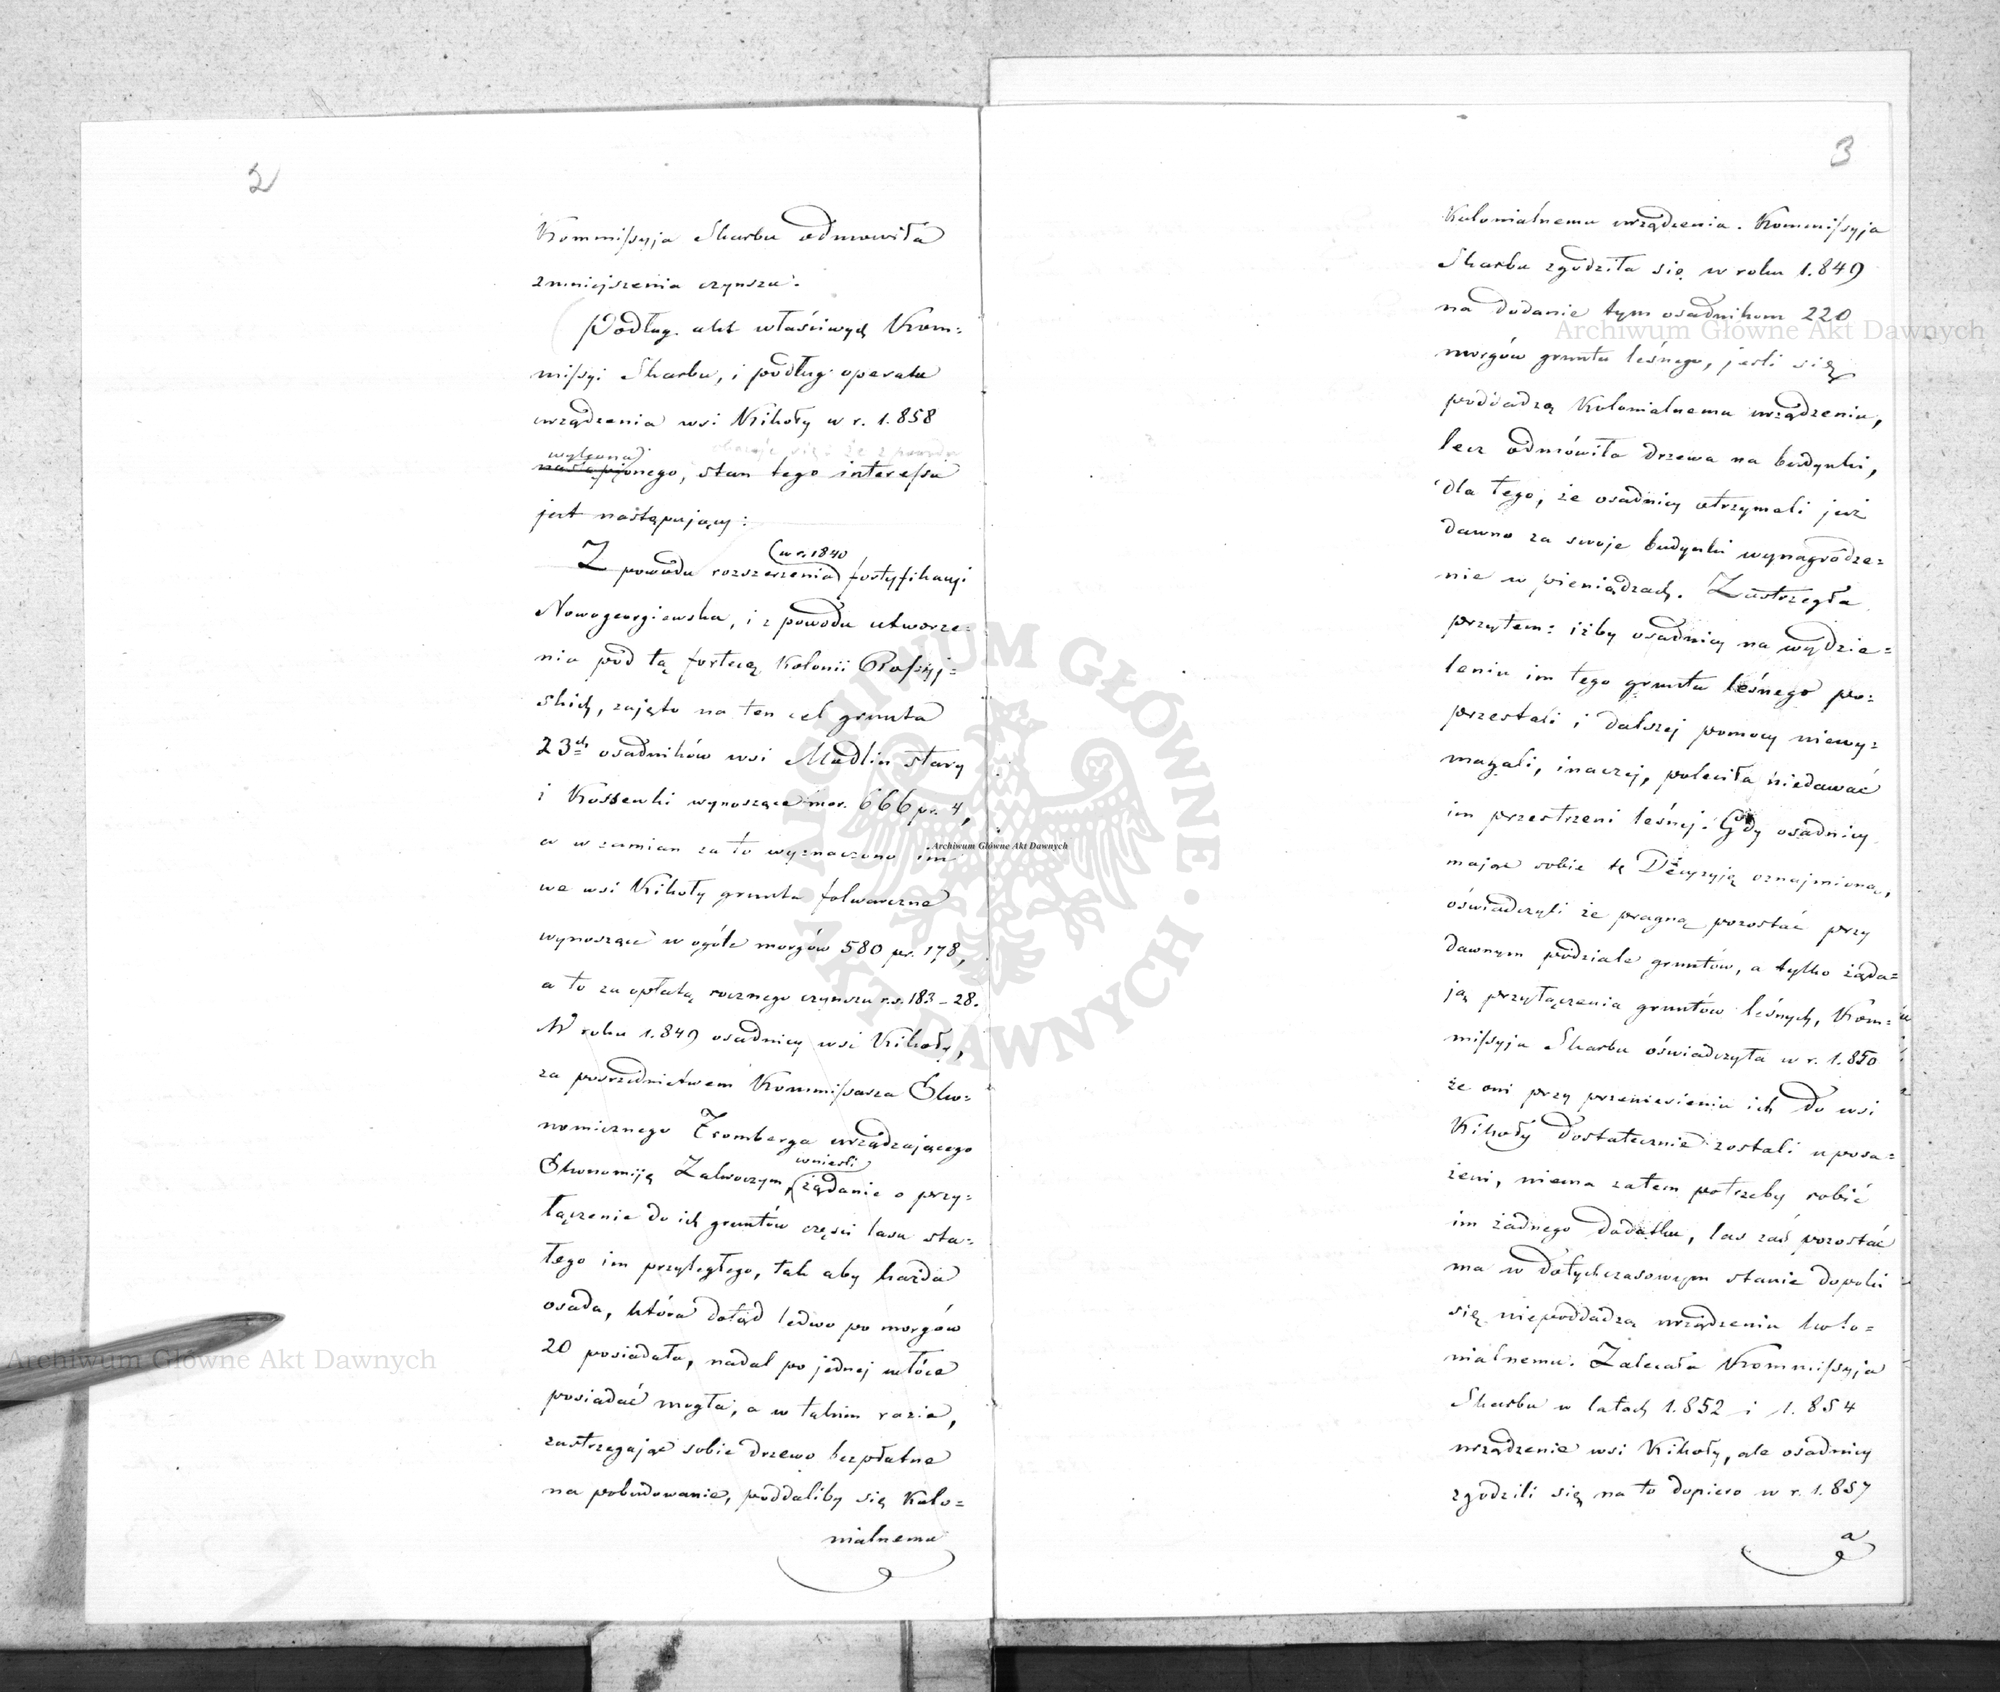 2
Kommissyja Skarbu odmowiła
zmniejszenia czynszu.
Podług akt właściwych Kom=
missyi Skarbu, i podług operatu
urządzenia wsi Kikoły w r. 1.858
wykona
nastąpionego, stan tego interessu
okazuje się: że z powodu
jest następujący:
(w r. 1840
Z powodu rozszerzenia fortyfikacyi
Nowogeorgiewska, i z powodu utworze=
nia pod tą fortecą Kolonii Rossyj=
skich, zajęto na ten cel grunta
23ch osadników wsi Modlin stary
i Kossewki wynoszące mor. 666 pr. 4,
a w zamian za to wyznaczono im
we wsi Kikoły grunta folwarczne
wynoszące w ogóle morgów 580 pr. 178,
a to za opłatą rocznego czynszu r.s. 183-28.
W roku 1.849 osadnicy wsi Kikoły,
za pośrednictwem Kommissarza Eko=
nomicznego Tromberga urządzającego
wnieśli
Ekonomiją Zakroczym, (żądanie o przy=
łączenie do ich gruntów części lasu sta=
łego im przyległego, tak aby każda
osada, która dotąd ledwo po morgów
20 posiadała, nadal po jednej włóce
posiadać mogła, a w takim razie,
zastrzegając sobie drzewo bezpłatne
na pobudowanie, poddaliby się Kolo=
nialnemu
3
Kolonialnemu urządzeniu. Kommissyja
Skarbu zgodziła się w roku 1.849
na dodanie tym osadnikom 220
morgów gruntu leśnego, jeśli się
poddadzą Kolonialnemu urządzeniu,
lecz odmówiła drzewa na budynki,
dla tego, że osadnicy otrzymali już
dawno za swoje budynki wynagrodze=
nie w pieniądzach. Zastrzegła
przytem: iżby osadnicy na wydzie=
leniu im tego gruntu leśnego po=
przestali i dalszej pomocy niewy=
magali, inaczej, poleciła niedawać
im przestrzeni leśnej. Gdy osadnicy
mając sobie tę Decyzyją oznajmioną,
oświadczyli że pragną pozostać przy
dawnym podziale gruntów, a tylko żąda=
ją przyłączenia gruntów leśnych, Kom=
missyja Skarbu oświadczyła w r. 1.850
że oni przy przeniesieniu ich do wsi
Kikoły dostatecznie zostali uposa=
żeni, niema zatem potrzeby robić
im żadnego dodatku, las zaś pozostać
ma w dotychczasowym stanie dopóki
się niepoddadzą urządzeniu kolo=
nialnemu. Zalecała Kommissyja
Skarbu w latach 1.852 i 1.854
urządzenie wsi Kikoły, ale osadnicy
zgodzili się na to dopiero w r. 1.857
a
Archiwum Główne Akt Dawnych
Archiwum Główne Akt Dawnych
Archiwum Główne Akt Dawnych
ARCHIWUM GŁÓWNE · AKT DAWNYCH ·